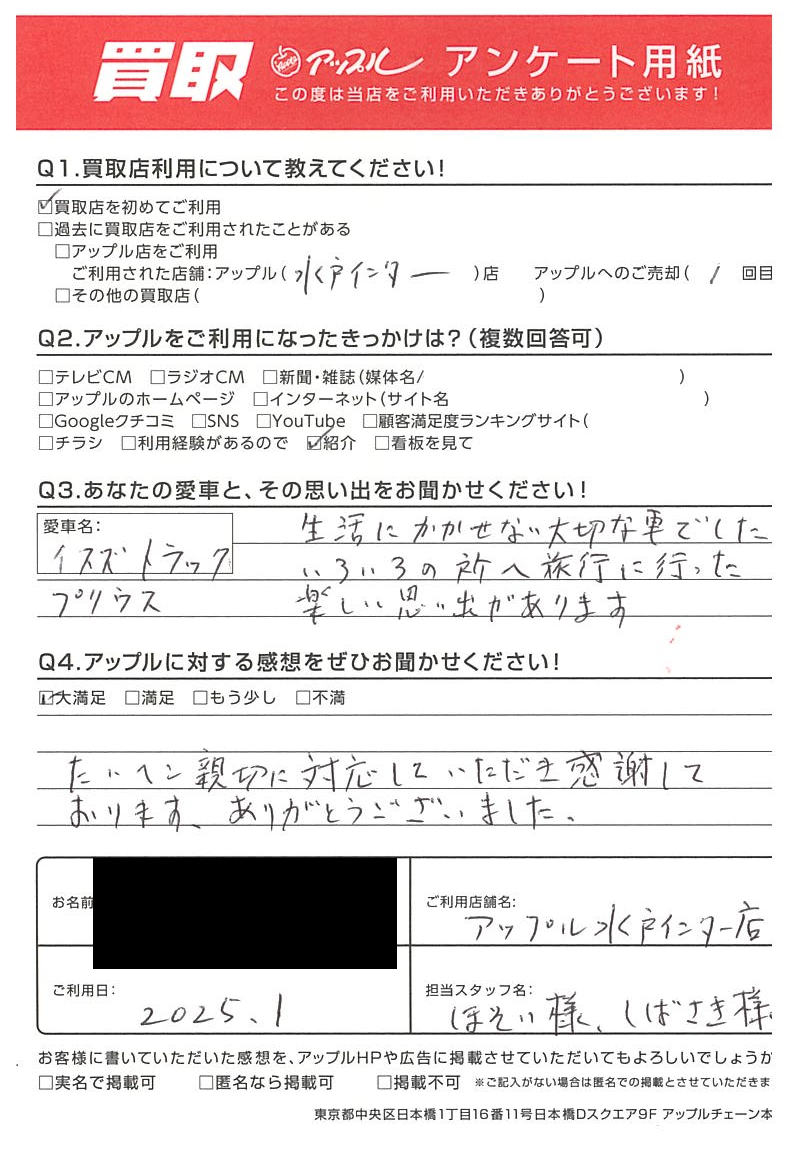 買取 アップル アンケート用紙
この度は当店をご利用いただきありがとうございます！
Q1.買取店利用について教えてください！
☑買取店を初めてご利用
□過去に買取店をご利用されたことがある
□アップル店をご利用
ご利用された店舗：アップル（水戸インター）店 アップルへのご売却（1 回目
□その他の買取店（ ）
Q2.アップルをご利用になったきっかけは？（複数回答可）
□テレビCM □ラジオCM □新聞・雑誌（媒体名/ ）
□アップルのホームページ □インターネット（サイト名 ）
□Googleクチコミ □SNS □YouTube □顧客満足度ランキングサイト（
□チラシ □利用経験があるので ☑紹介 □看板を見て
Q3.あなたの愛車と、その思い出をお聞かせください！
愛車名：
イスズトラック
プリウス
生活にかかせない大切な車でした
いろいろの所へ旅行に行った
楽しい思い出があります
Q4.アップルに対する感想をぜひお聞かせください！
☑大満足 □満足 □もう少し □不満
たいヘン親切に対応していただき感謝して
おります、ありがとうございました。
お名前
ご利用店舗名：
アップル水戸インター店
ご利用日：
2025.1
担当スタッフ名：
ほそい様、しばさき様
お客様に書いていただいた感想を、アップルHPや広告に掲載させていただいてもよろしいでしょうか
□実名で掲載可 □匿名なら掲載可 □掲載不可 ※ご記入がない場合は匿名での掲載とさせていただきま
東京都中央区日本橋1丁目16番11号日本橋Dスクエア9F アップルチェーン本